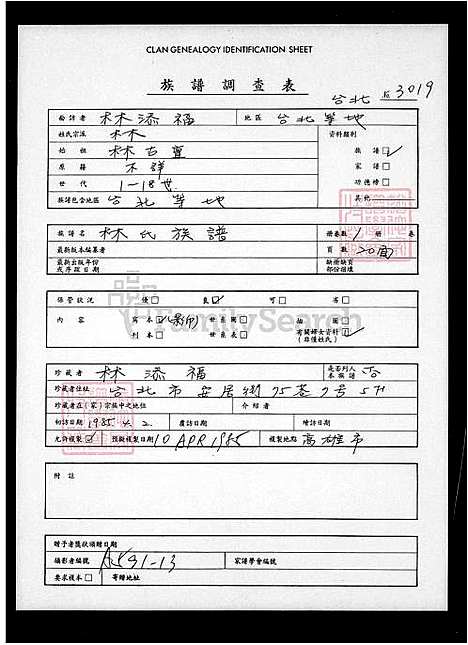 CLAN GENEALOGY IDENTIFICATION SHEET
族譜調查表
台北 3019
林添福 地區 台北等地
姓氏宗派 林 資料類別
始祖 林古 族譜 ☑
原籍 不詳 家譜 □
世代 1-18世 功德榜 □
族譜包含地區 台北等地 其他
族譜名 林氏族譜 冊卷數 1 冊 卷
最新版本編纂者 頁數 20面
最新出版年份 缺冊缺頁
或序跋日期 部份描壞
保管狀況 優 □ 良 ☑ 可 □ 劣 □
內容 寫本 (影印) 世系圖 □ 插圖 □
刊本 □ 世系表 □ 有關婦女資料 ☑
(非僅姓氏)
珍藏者 林添福 是否列入本族譜 否
珍藏者住址 台北市安居街75巷7号5H
珍藏者在(家)宗族中之地位 介紹者
初訪日期 1985.4.2. 續訪日期
允許複製 ☑ 預擬複製日期 10 APR 1985 複製地點 高雄市
附註
贈予者獎狀頒贈日期
攝影者編號 A591-13 家譜學會編號
要求複本 □ 寄贈地址
FamilySearch